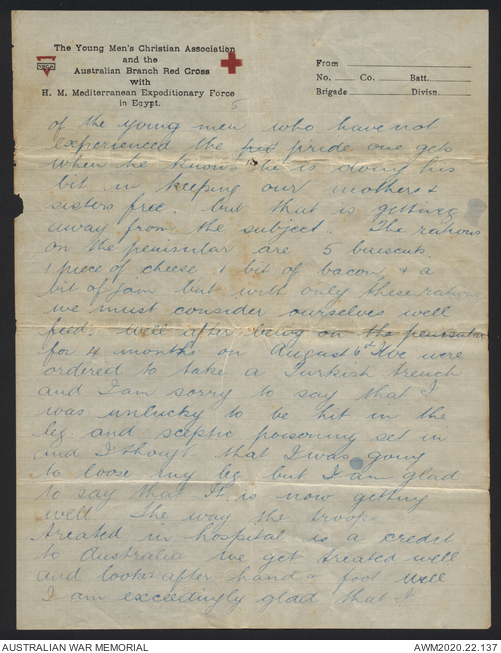 The Young Men's Christian Association
and the
Australian Branch Red Cross
with
H. M. Mediterranean Expeditionary Force
in Egypt.
YMCA
From
No. Co. Batt.
Brigade Divisn.
5
of the young men who have not
experienced the pride one gets
when he knows he is doing his
bit in keeping our mothers &
sisters free. but that is getting
away from the subject. The rations
on the penisular are 5 buiscuts.
1 piece of cheese 1 bit of bacon, & a
bit of jam but with only these rations
we must consider ourselves well
feed. Well after being on the penisular
for 4 months on August 6th we were
ordered to take a Turkish trench
and I am sorry to say that I
was unlucky to be hit in the
leg. and sceptic poisoning set in
and I thought that I was going
to loose my leg but I am glad
to say that it is now getting
well. The way the troop
treated in hospital is a credit
to Australia we get treated well
and looked after hand & foot well
I am exceedingly glad that I
AUSTRALIAN WAR MEMORIAL
AWM2020.22.137